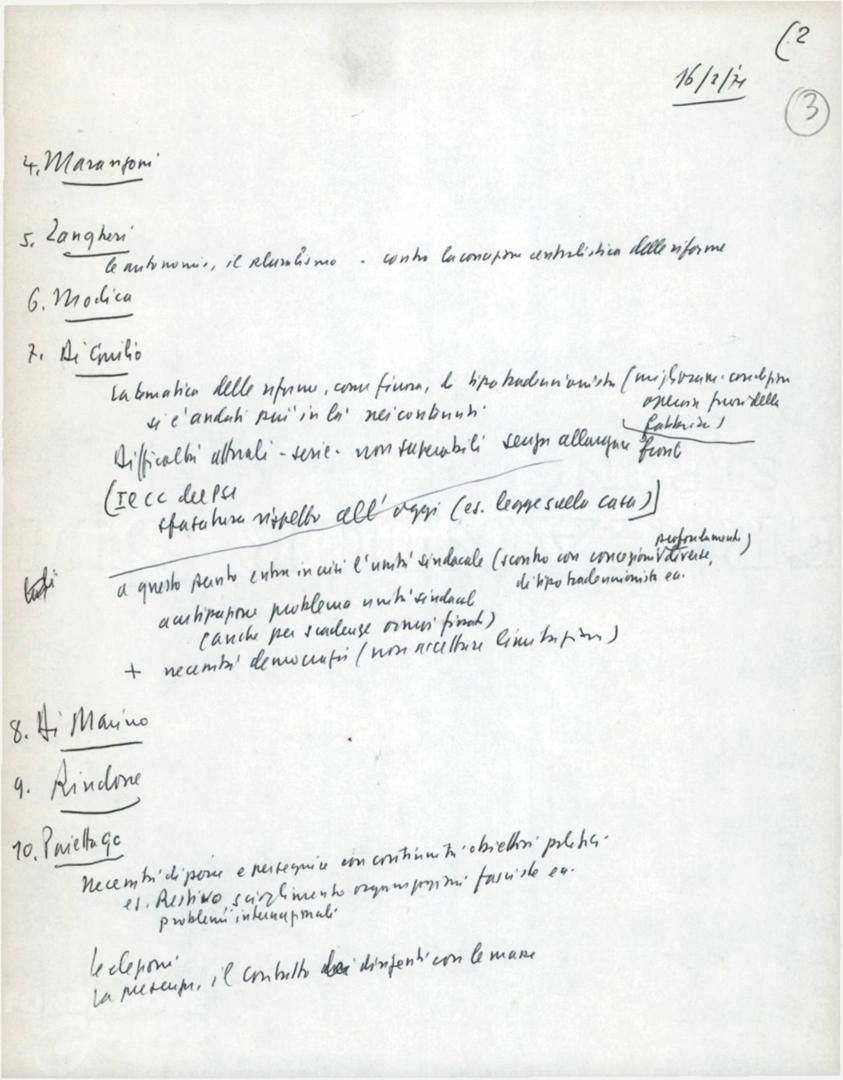 (2
16/2/71
3
4. Marangoni
5. Zangheri
le autonomie, il pluralismo - contro la concezione centralistica delle riforme
6. Modica
7. Di Giulio
La tematica delle riforme, come finora, di tipo tradeunionista (miglioram. condizioni
operaie fuori della
fabbrica)
si è andati più in là nei contenuti
Difficoltà attuali - serie - non superabili senza allargare fronte
(Il CC del PSI
sfasatura rispetto all'oggi (es. legge sulla casa)]
a questo punto entra in crisi l'unità sindacale (scontro con concezioni profondamente diverse,
di tipo tradeunionista ecc.)
anticipazione problema unità sindacale
(anche per scadenze ormai fissate)
+ necessità democrazia (non accettare limitazioni)
8. Di Marino
9. Rindone
10. Pajetta GC
Necessità di porre e perseguire con continuità obiettivi politici
es. Restivo, scioglimento organizzazioni fasciste ecc.
problemi internazionali
Le elezioni
La presenza, il contatto dei dirigenti con le masse